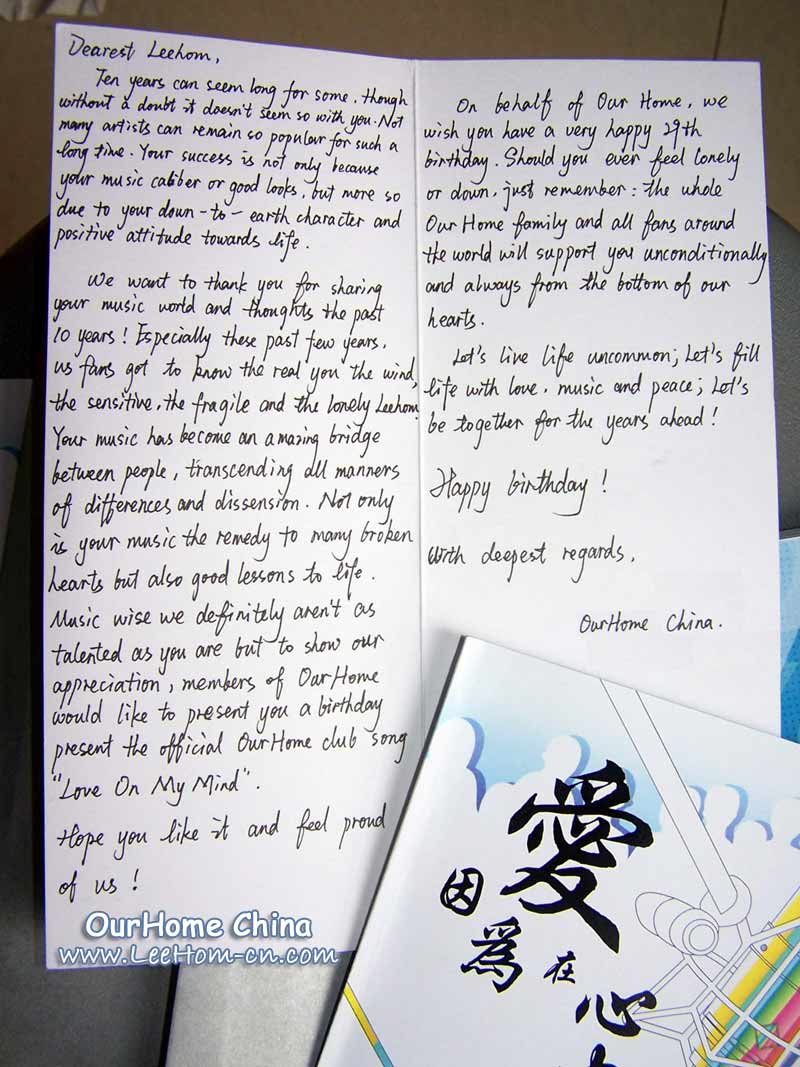 Dearest Leehom,
Ten years can seem long for some, though
without a doubt it doesn't seem so with you. Not
many artists can remain so popular for such a
long time. Your success is not only because
your music caliber or good looks, but more so
due to your down-to-earth character and
positive attitude towards life.
We want to thank you for sharing
your music world and thoughts the past
10 years! Especially these past few years,
us fans got to know the real you the wind,
the sensitive, the fragile and the lonely Leehom.
Your music has become an amazing bridge
between people, transcending all manners
of differences and dissension. Not only
is your music the remedy to many broken
hearts but also good lessons to life.
Music wise we definitely aren't as
talented as you are but to show our
appreciation, members of OurHome
would like to present you a birthday
present the official OurHome club song
"Love On My Mind".
Hope you like it and feel proud
of us!
On behalf of Our Home, we
wish you have a very happy 29th
birthday. Should you ever feel lonely
or down, just remember: the whole
Our Home family and all fans around
the world will support you unconditionally
and always from the bottom of our
hearts.
Let's live life uncommon; Let's fill
life with love, music and peace; Let's
be together for the years ahead!
Happy birthday!
With deepest regards,
OurHome China.
因為愛在心
OurHome China
www.LeeHom-cn.com